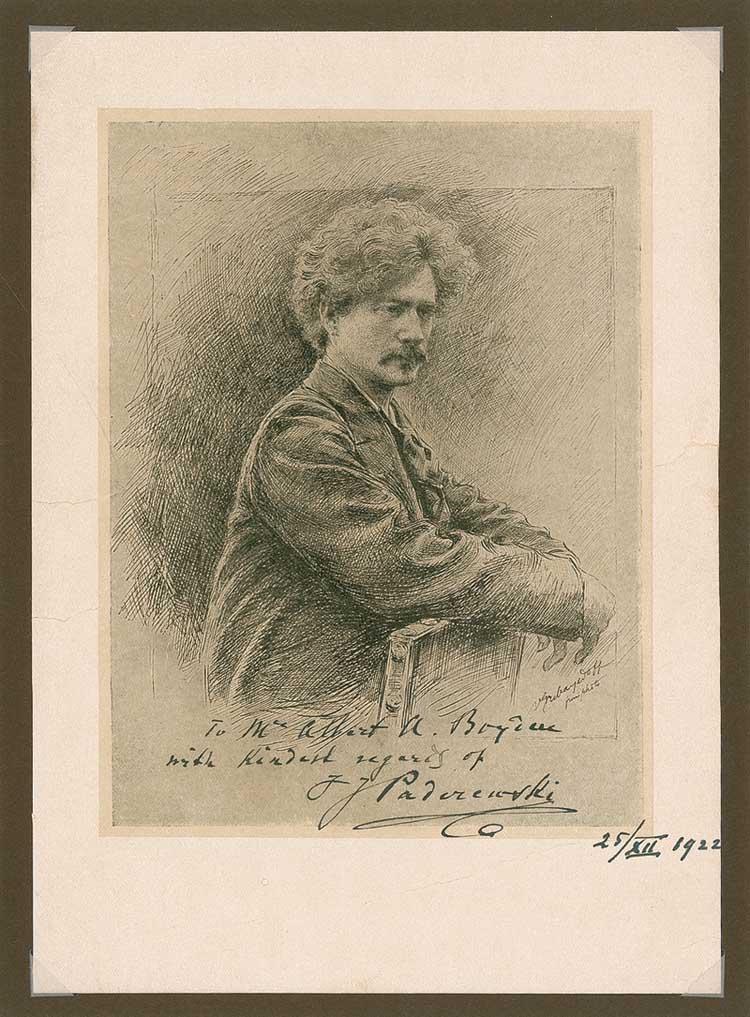 VGribayédoff
from photo
To Mr Albert A. Boyden
with kindest regards of
I J Paderewski
25/XII 1922